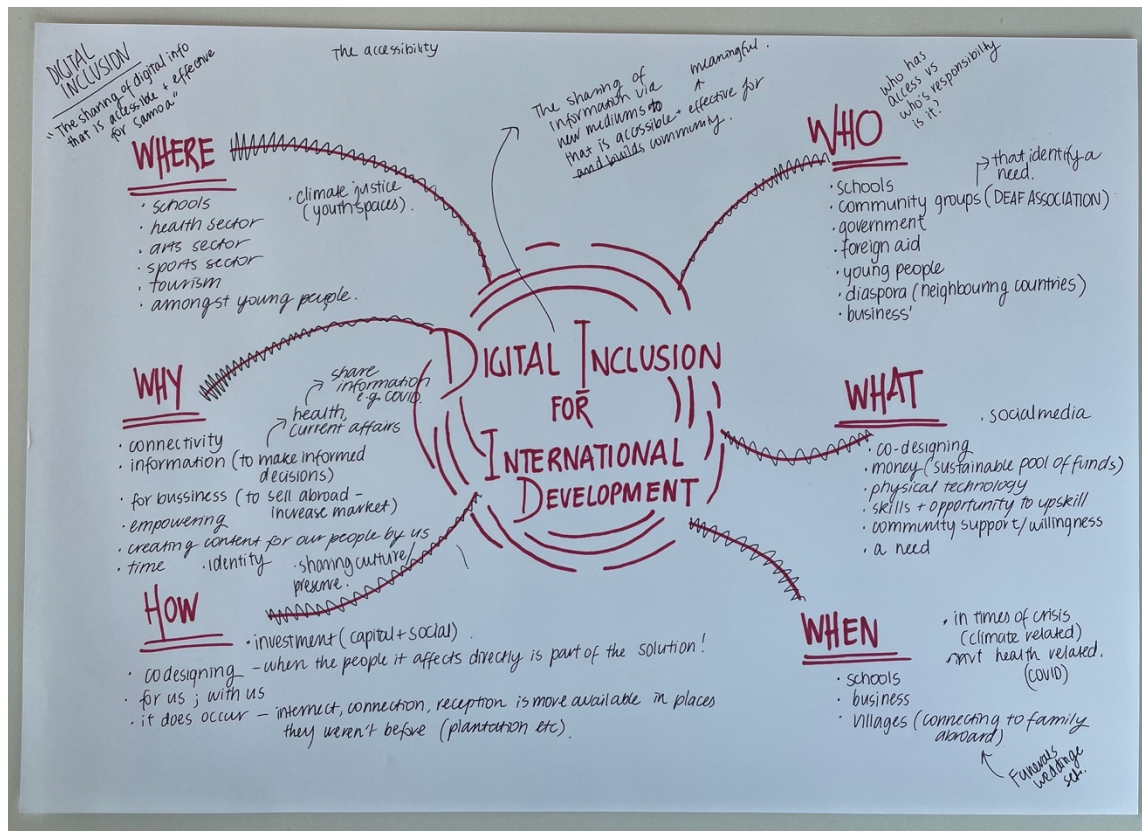 DIGITAL
INCLUSION
"The sharing of digital info
that is accessible + effective
for Samoa"
The accessibility
meaningful.
The sharing of
information via
new mediums to
that is acessible + effective for
and builds community.
who has
access vs
who's responsibilty
is it?
WHERE
· schools
· health sector
· arts sector
· sports sector
· tourism
· amongst young people.
· climate justice
(youth spaces).
WHO
that identify a
need.
· schools
· community groups (DEAF ASSOCIATION)
· government
· foreign aid
· young people
· diaspora (neighbouring countries)
· business'
DIGITAL INCLUSION
FOR
INTERNATIONAL
DEVELOPMENT
WHY
share
information
e.g. COVID
health,
current affairs
· connectivity
· information (to make informed
decisions)
· for bussiness (to sell abroad –
increase market)
· empowering
· creating content for our people by us
· time · identity · sharing culture/
preserve.
WHAT
· social media
· co-designing
· money (sustainable pool of funds)
· physical technology
· skills + opportunity to upskill
· community support/willingness
· a need
HOW
· investment (capital + social).
· codesigning – when the people it affects directly is part of the solution!
· for us ; with us
· it does occur – internect, connection, reception is move available in places
they weren't before (plantation etc).
WHEN
· in times of crisis
(climate related)
health related.
(COVID)
· schools
· business
· villages (connecting to family
abroad)
Funerals
weddings